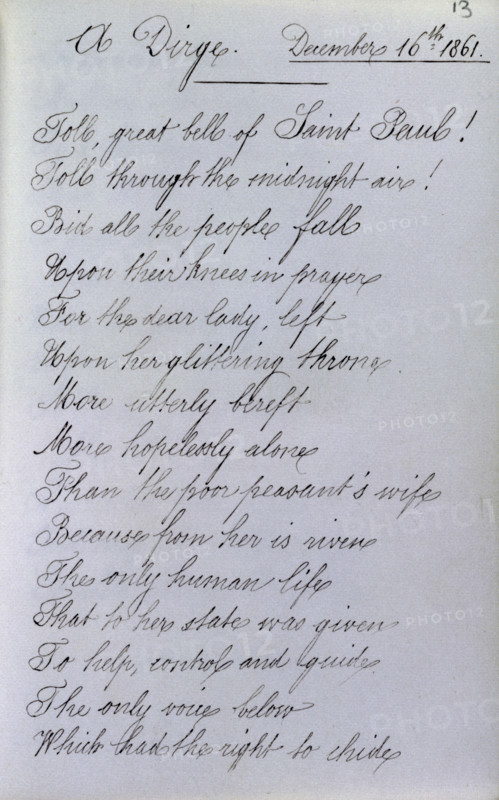 13
A Dirge. December 16th 1861.
Toll, great bell of Saint Paul!
Toll through the midnight air!
Bid all the people fall
Upon their knees in prayer
For the dear lady, left
Upon her glittering throne.
More utterly bereft
More hopelessly alone
Than the poor peasant's wife
Because from her is riven
The only human life
That to her state was given
To help, control and guide.
The only voice below
Which had the right to chide
PHOTO12